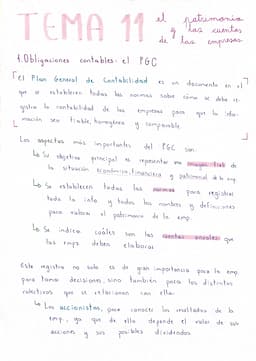 TEMA 11 el patrimonio
y las cuentas
de las empresas
1. Obligaciones contables: el PGC
El Plan General de Contabilidad es un documento en el
que se establecen todas las normas sobre cómo se debe re-
gistrar la contabilidad de las empresas para que la infor-
mación sea fiable, homogénea y comparable.
Los aspectos más importantes del PGC son:
↳ Su objetivo principal es representar una imagen fiel de
la situación económica, financiera y patrimonial de la emp.
↳ Se establecen todas las normas para registrar
toda la info y todos los nombres y definiciones
para valorar el patrimonio de la emp.
↳ Se indica cuáles son las cuentas anuales que
las emps deben elaborar
Este registro no solo es de gran importancia para la emp.
para tomar decisiones, sino también para los distintos
colectivos que se relacionan con ella:
↳ Los accionistas, para conocer los resultados de la
emp., ya que de ello depende el valor de sus
acciones y sus posibles dividendos